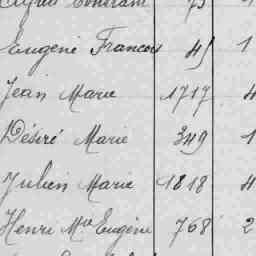 Eugène Francois 45 1
Jean Marie 1717 4
Désiré Marie 349 1
Julien Marie 1818 4
Henri Mie Eugène 768 2